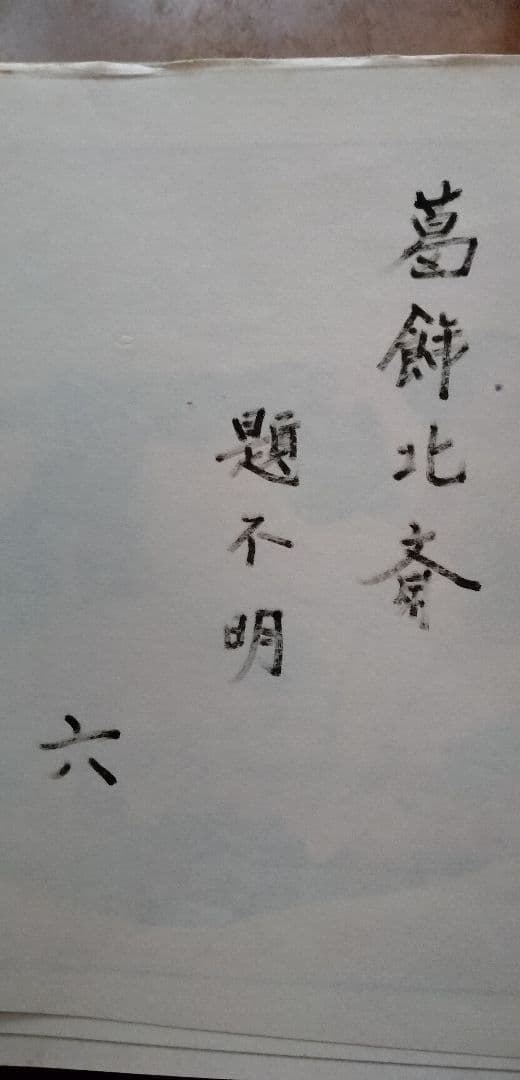 葛飾北斎
題不明
六